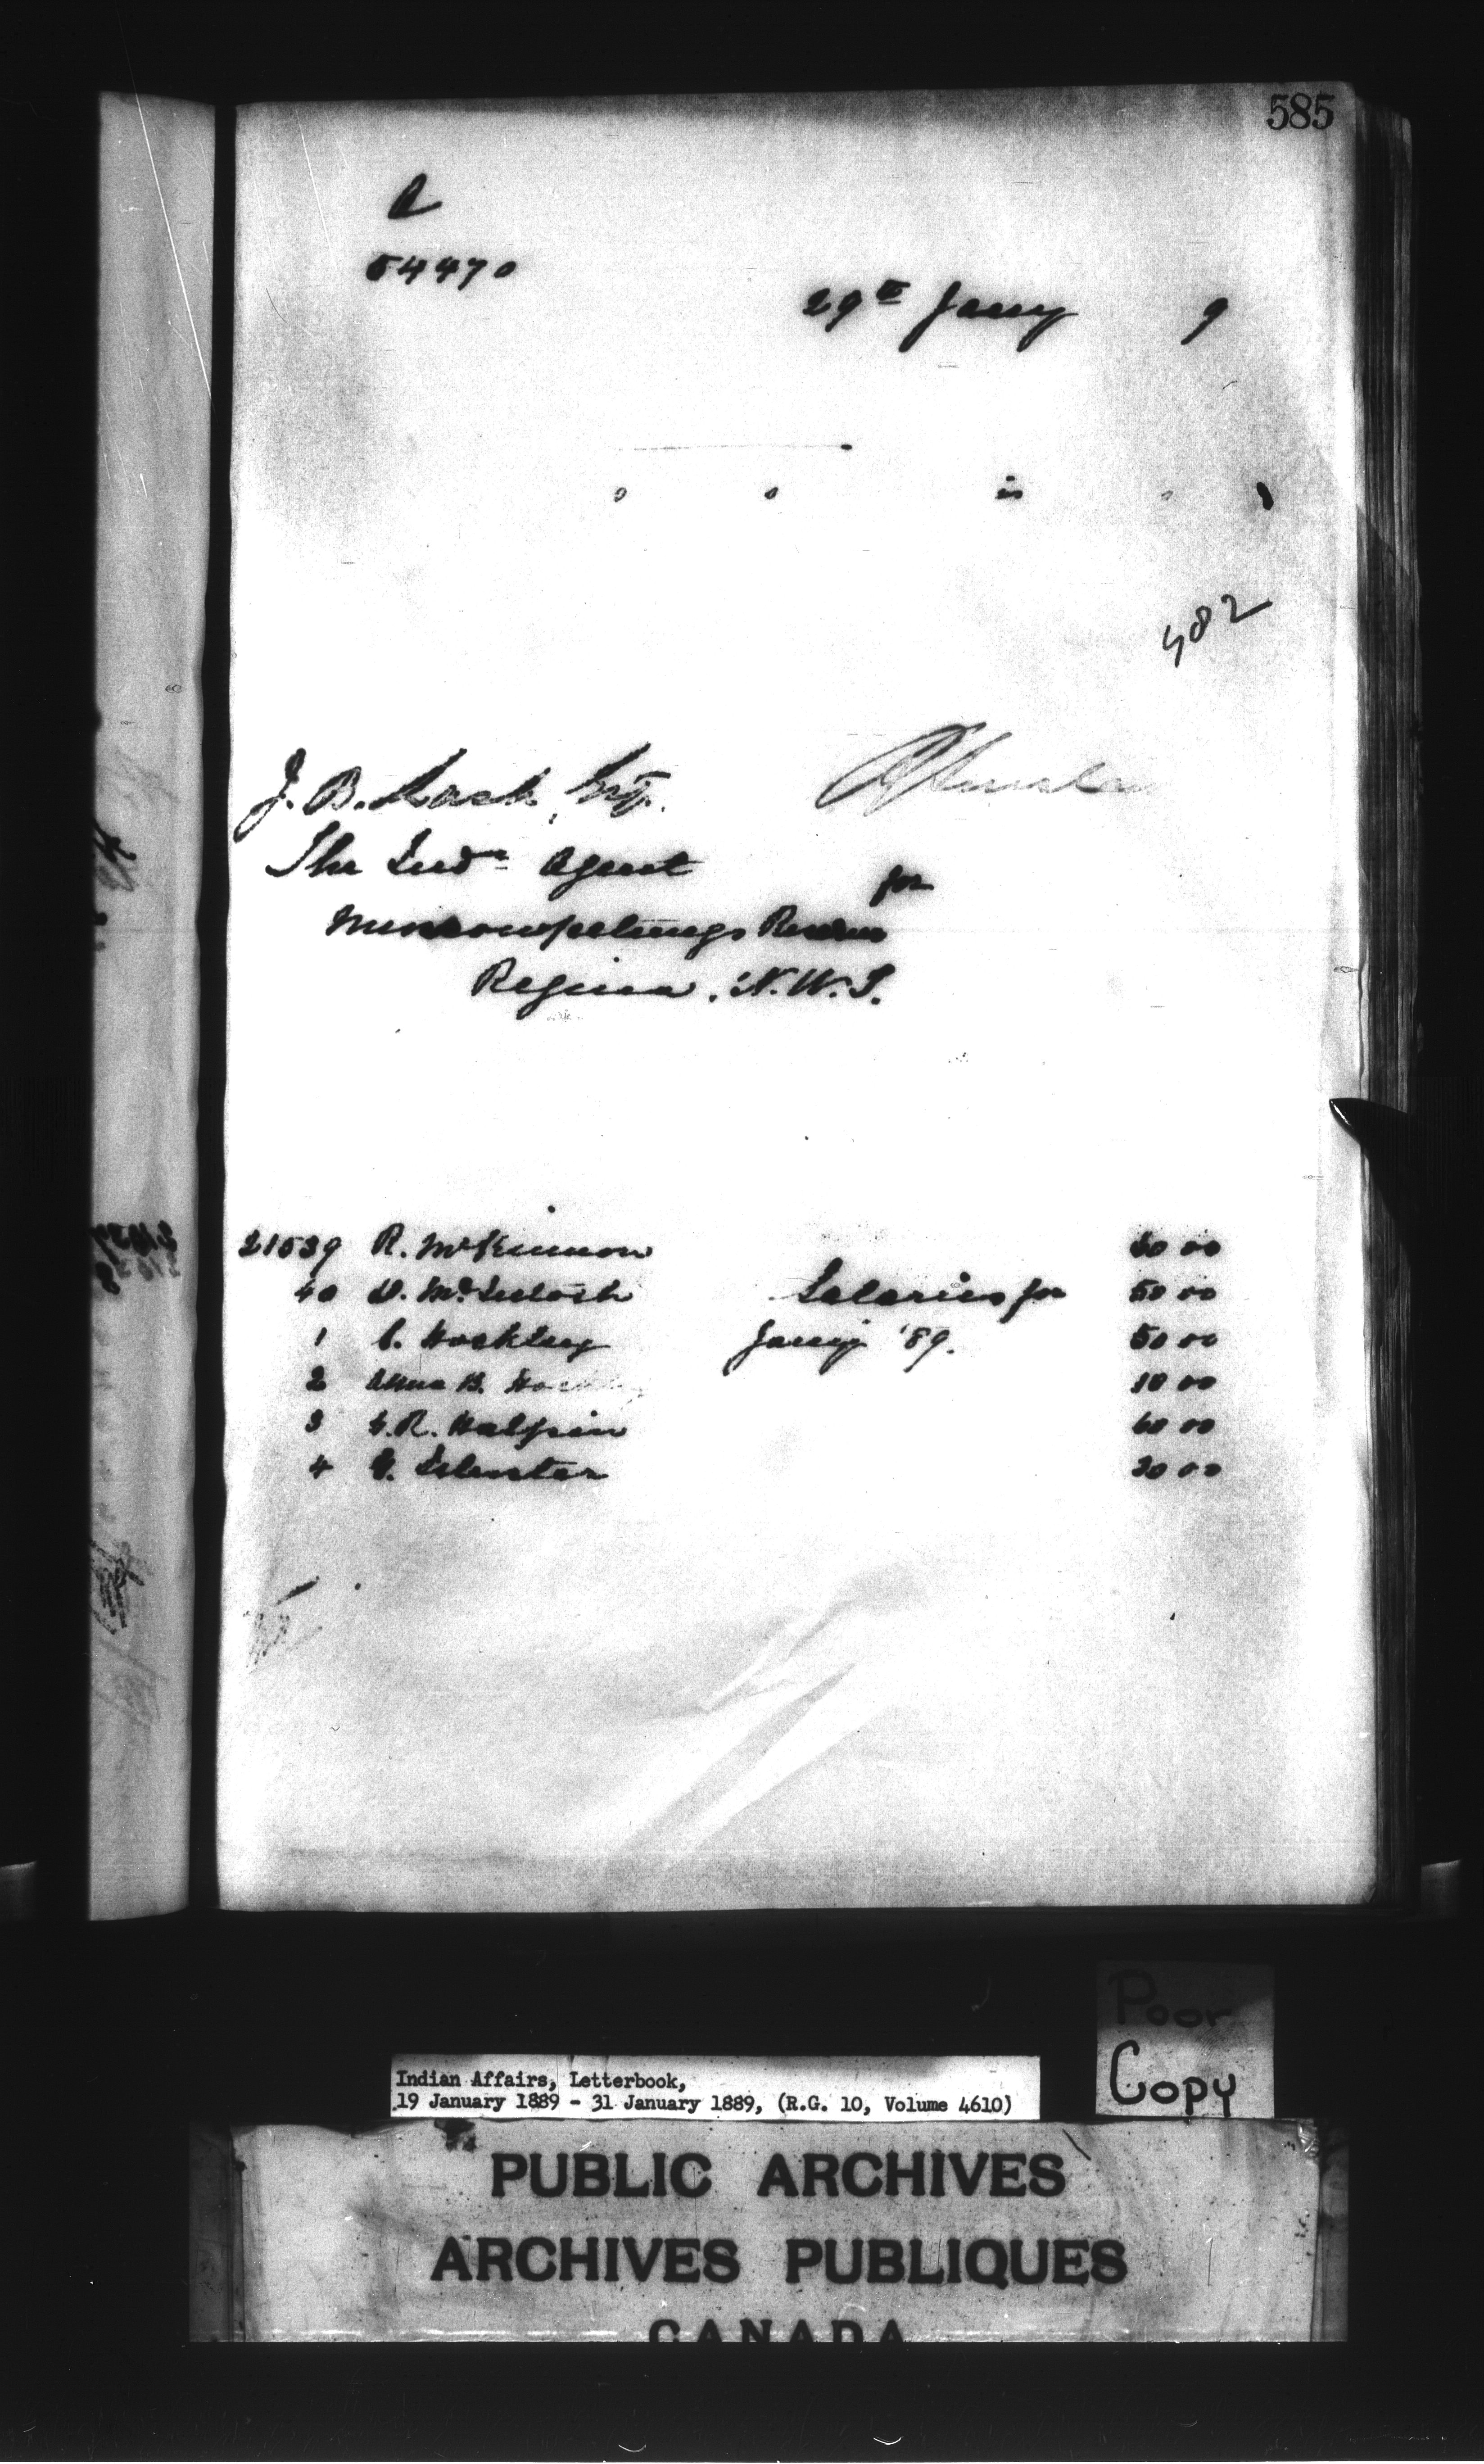 585
A
54470
29th Jany 9
482
J. B. Lash, Esq.
The Indn Agent
for
Muscowpetungs Reserve
Regina, N.W.T.
21539 R. McKinnon 30 00
40 D. McIntosh Salaries for 50 00
1 C. Hockley Jany '89. 50 00
2 Anna B. Hockley 10 00
3 H.R. Halpin 60 00
4 30 00
Poor
Copy
Indian Affairs, Letterbook,
19 January 1889 - 31 January 1889, (R.G. 10, Volume 4610)
PUBLIC ARCHIVES
ARCHIVES PUBLIQUES
CANADA